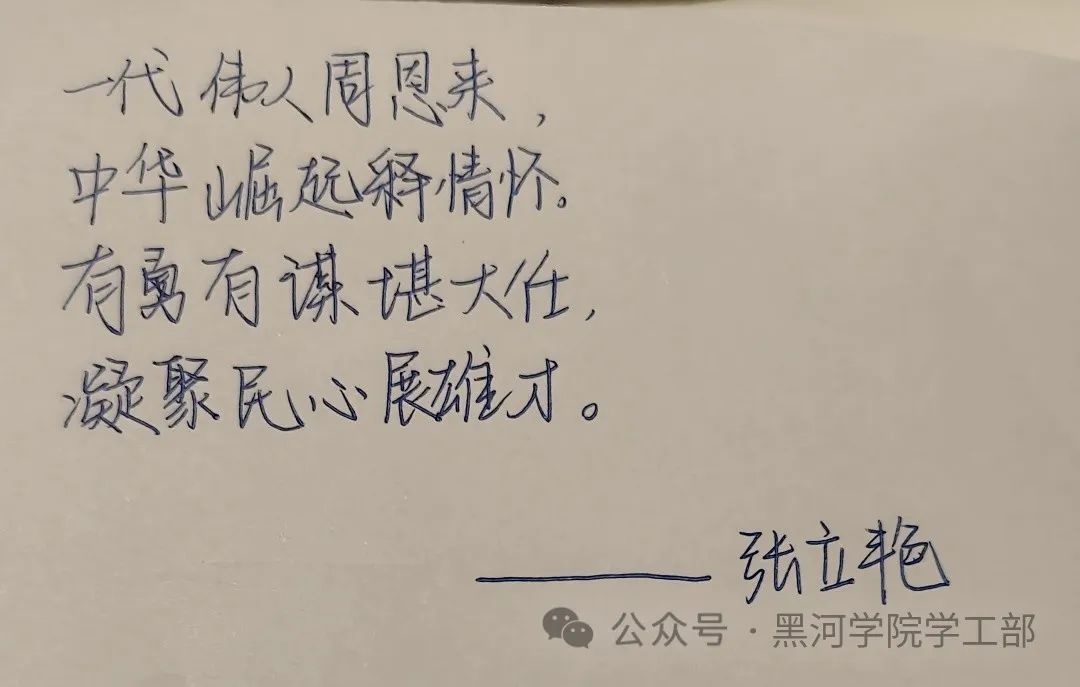 一代伟人周恩来，
中华崛起释情怀。
有勇有谋堪大任，
凝聚民心展雄才。
——张立艳
公众号·黑河学院学工部